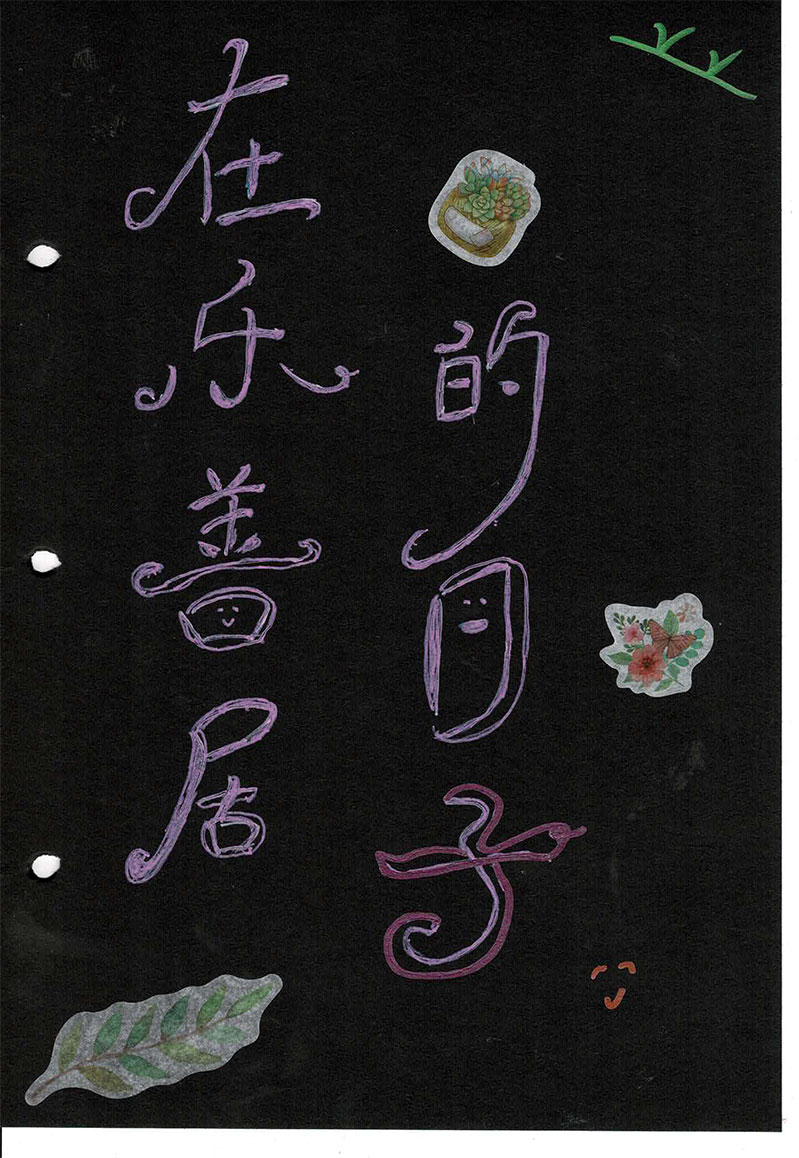 在乐善居
的日子